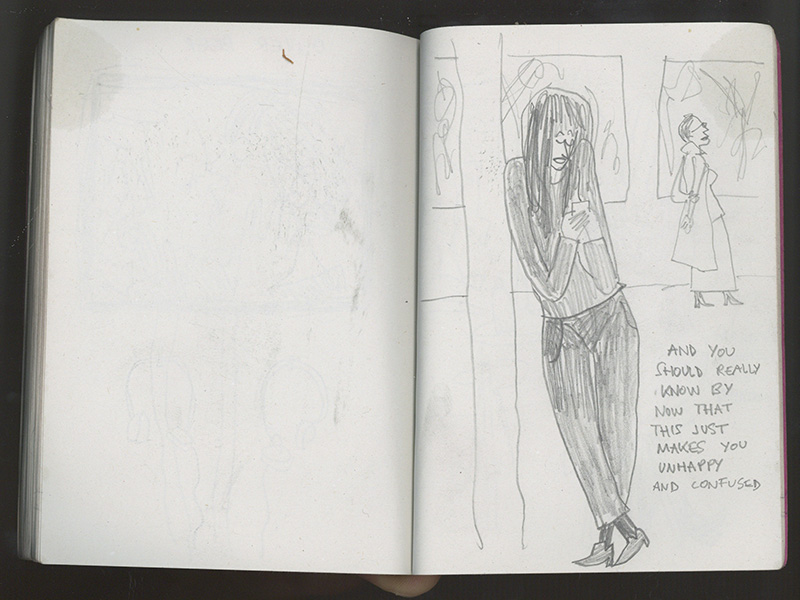 AND YOU
SHOULD REALLY
KNOW BY
NOW THAT
THIS JUST
MAKES YOU
UNHAPPY
AND CONFUSED